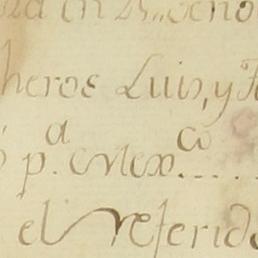 en 25,, de no
heros Luis, y F
p.ª Mex.co ....
el referido